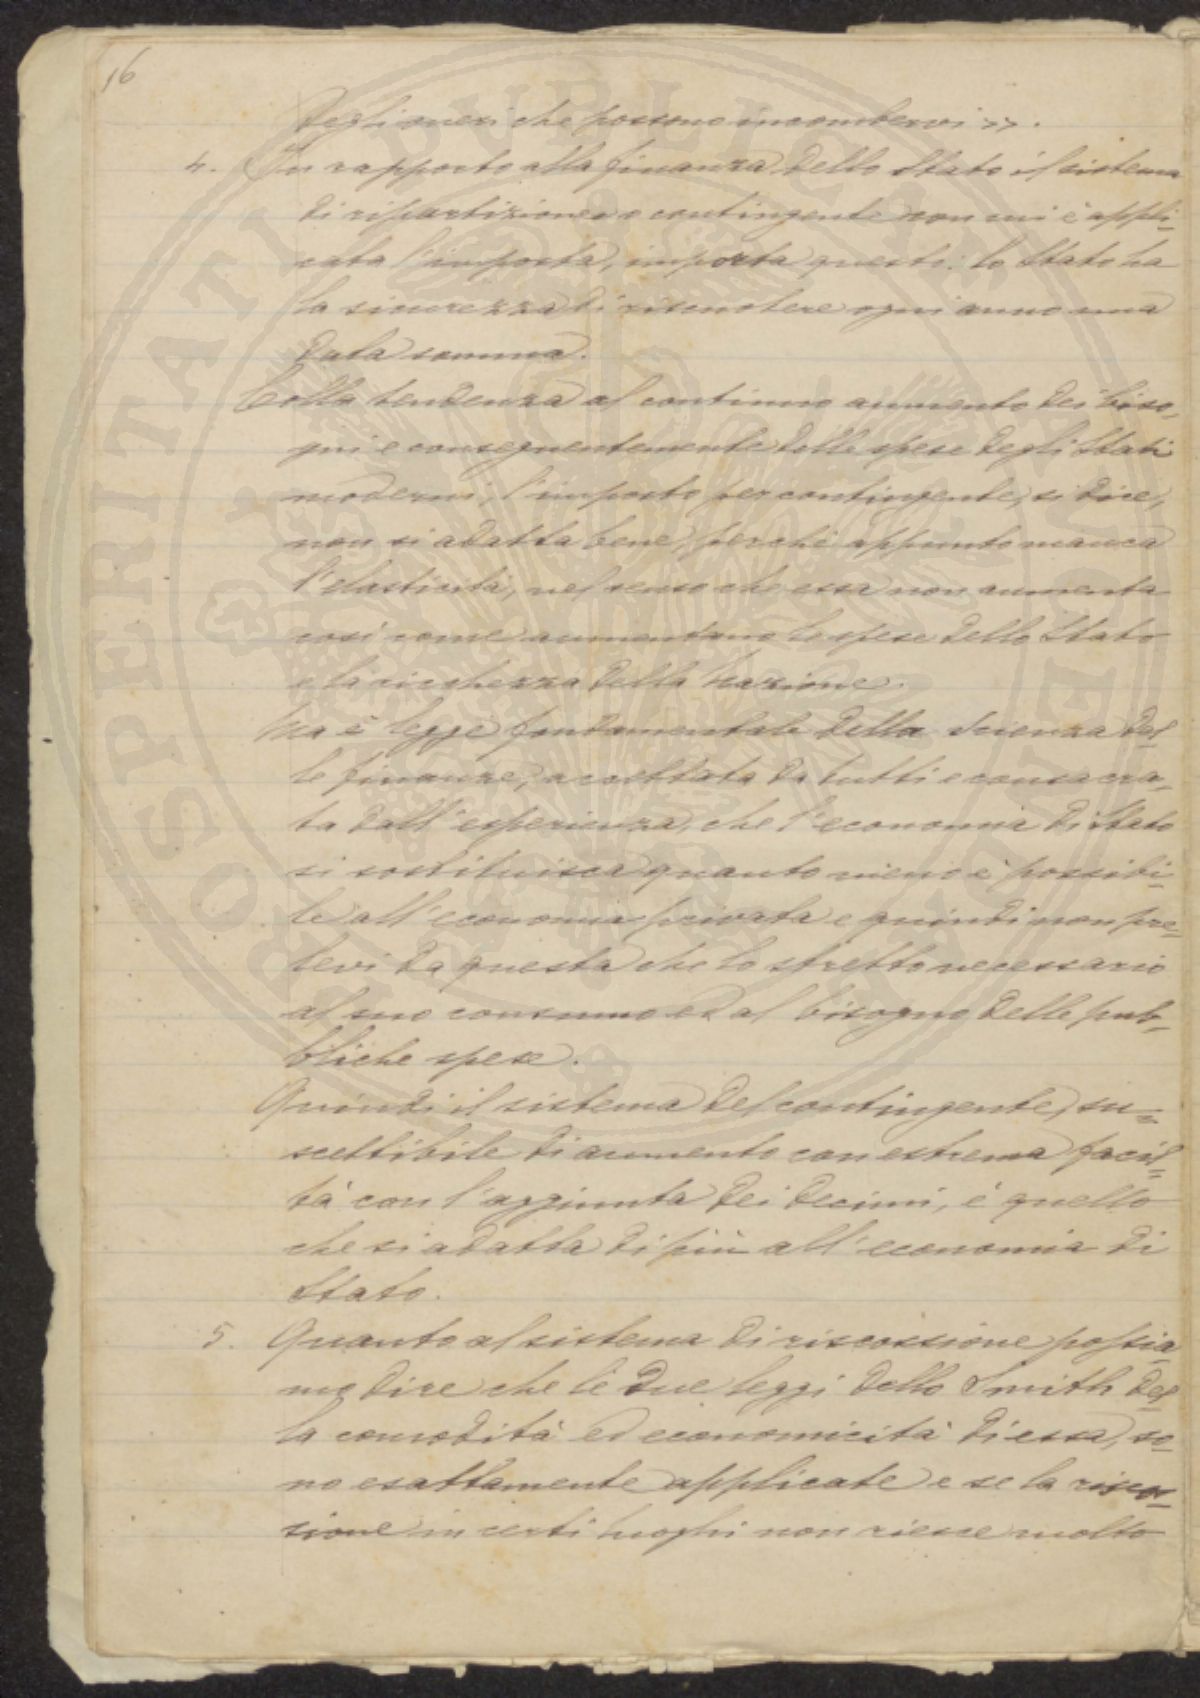 16
degli oneri che possono incombervi >>.
4. In rapporto alla finanza dello Stato il sistema
di ripartizione o contingente con cui è appli-
cata l'imposta, importa questo: lo Stato ha
la sicurezza di riscuotere ogni anno una
data somma.
Colla tendenza al continuo aumento dei biso-
gni e conseguentemente delle spese degli Stati
moderni, l'imposta per contingente, si dice,
non si adatta bene, perchè appunto manca
l'elasticità, nel senso che essa non aumenta
così come aumentano le spese dello Stato
e la ricchezza della Nazione.
Ma è legge fondamentale della Scienza del-
le finanze, accettata da tutti e consacra-
ta dall'esperienza, che l'economia di Stato
si sostituisca quanto meno è possibi-
le all'economia privata e quindi non pre-
levi da questa che lo stretto necessario
al suo consumo ed al bisogno delle pub-
bliche spese.
Quindi il sistema del contingente, su-
scettibile di aumento con estrema facil-
tà con l'aggiunta dei decimi, è quello
che si adatta di più all'economia di
Stato.
5. Quanto al sistema di riscossione possia
mo dire che le due leggi dello Smith del-
la comodità ed economicità di essa, so-
no esattamente applicate e se la riscos-
sione in certi luoghi non riesce molto
PROSPERITATI PUBLICAE AUGENDAE